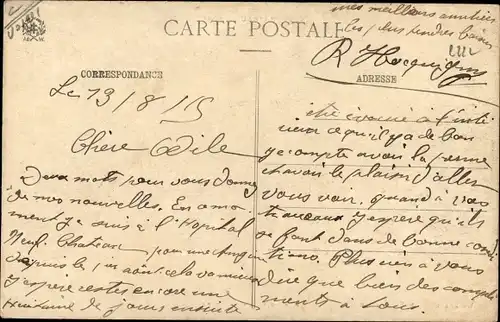 CARTE POSTALE
CORRESPONDANCE
ADRESSE
mes meilleurs amitiés
les plus tendres baisers
R Hocquigny
Le 13/8/15
Chère Odile
Deux mots pour vous donner
de mes nouvelles. En ce mo-
ment je suis à l'hopital
Neuf Chateau pour me
depuis le 1er aout cela va mieux
j'espère rester encore une
huitaine de jours ensuite
être évacué à l'inté
rieur ce qu'il y a de bon
je compte avoir la perme
avoir le plaisir d'aller
vous voir, quand à vos
travaux j'espère qu'ils
se font dans de bonne condi
tions. Plus rien à vous
dire que bien des compli
ments à tous.